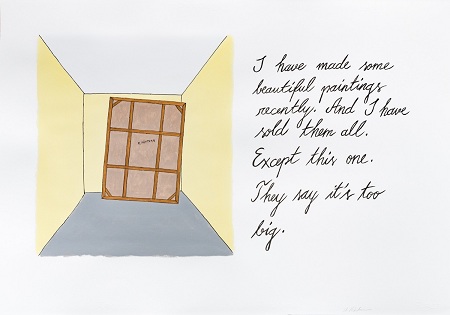 I have made some
beautiful paintings
recently. And I have
sold them all.
Except this one.
They say it's too
big.